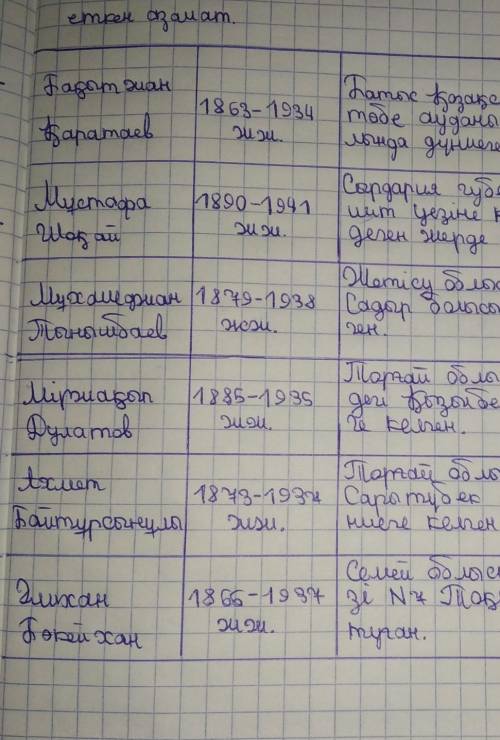 еткен азамат.
Бақытжан
Қаратаев
1863-1934
жж.
Батыс Қазақс
төбе ауданы
лында дүниеге
Мұстафа
Шоқай
1890-1941
жж.
Сырдария губе
шит уезіне қ
деген жерде
Мұхамеджан
Тынышбаев
1879-1938
жж.
Жетісу облыс
Садыр болысы
ген.
Міржақып
Дулатов
1885-1935
жж.
Торғай облы
дегі Қызбе
ге келген.
Ахмет
Байтұрсынұлы
1873-1937
жж.
Торғай облы
Сарытүбек
ниеге келген
Әлихан
Бөкейхан
1866-1937
жж.
Семей облыс
зі N7 Тоқ
туған.